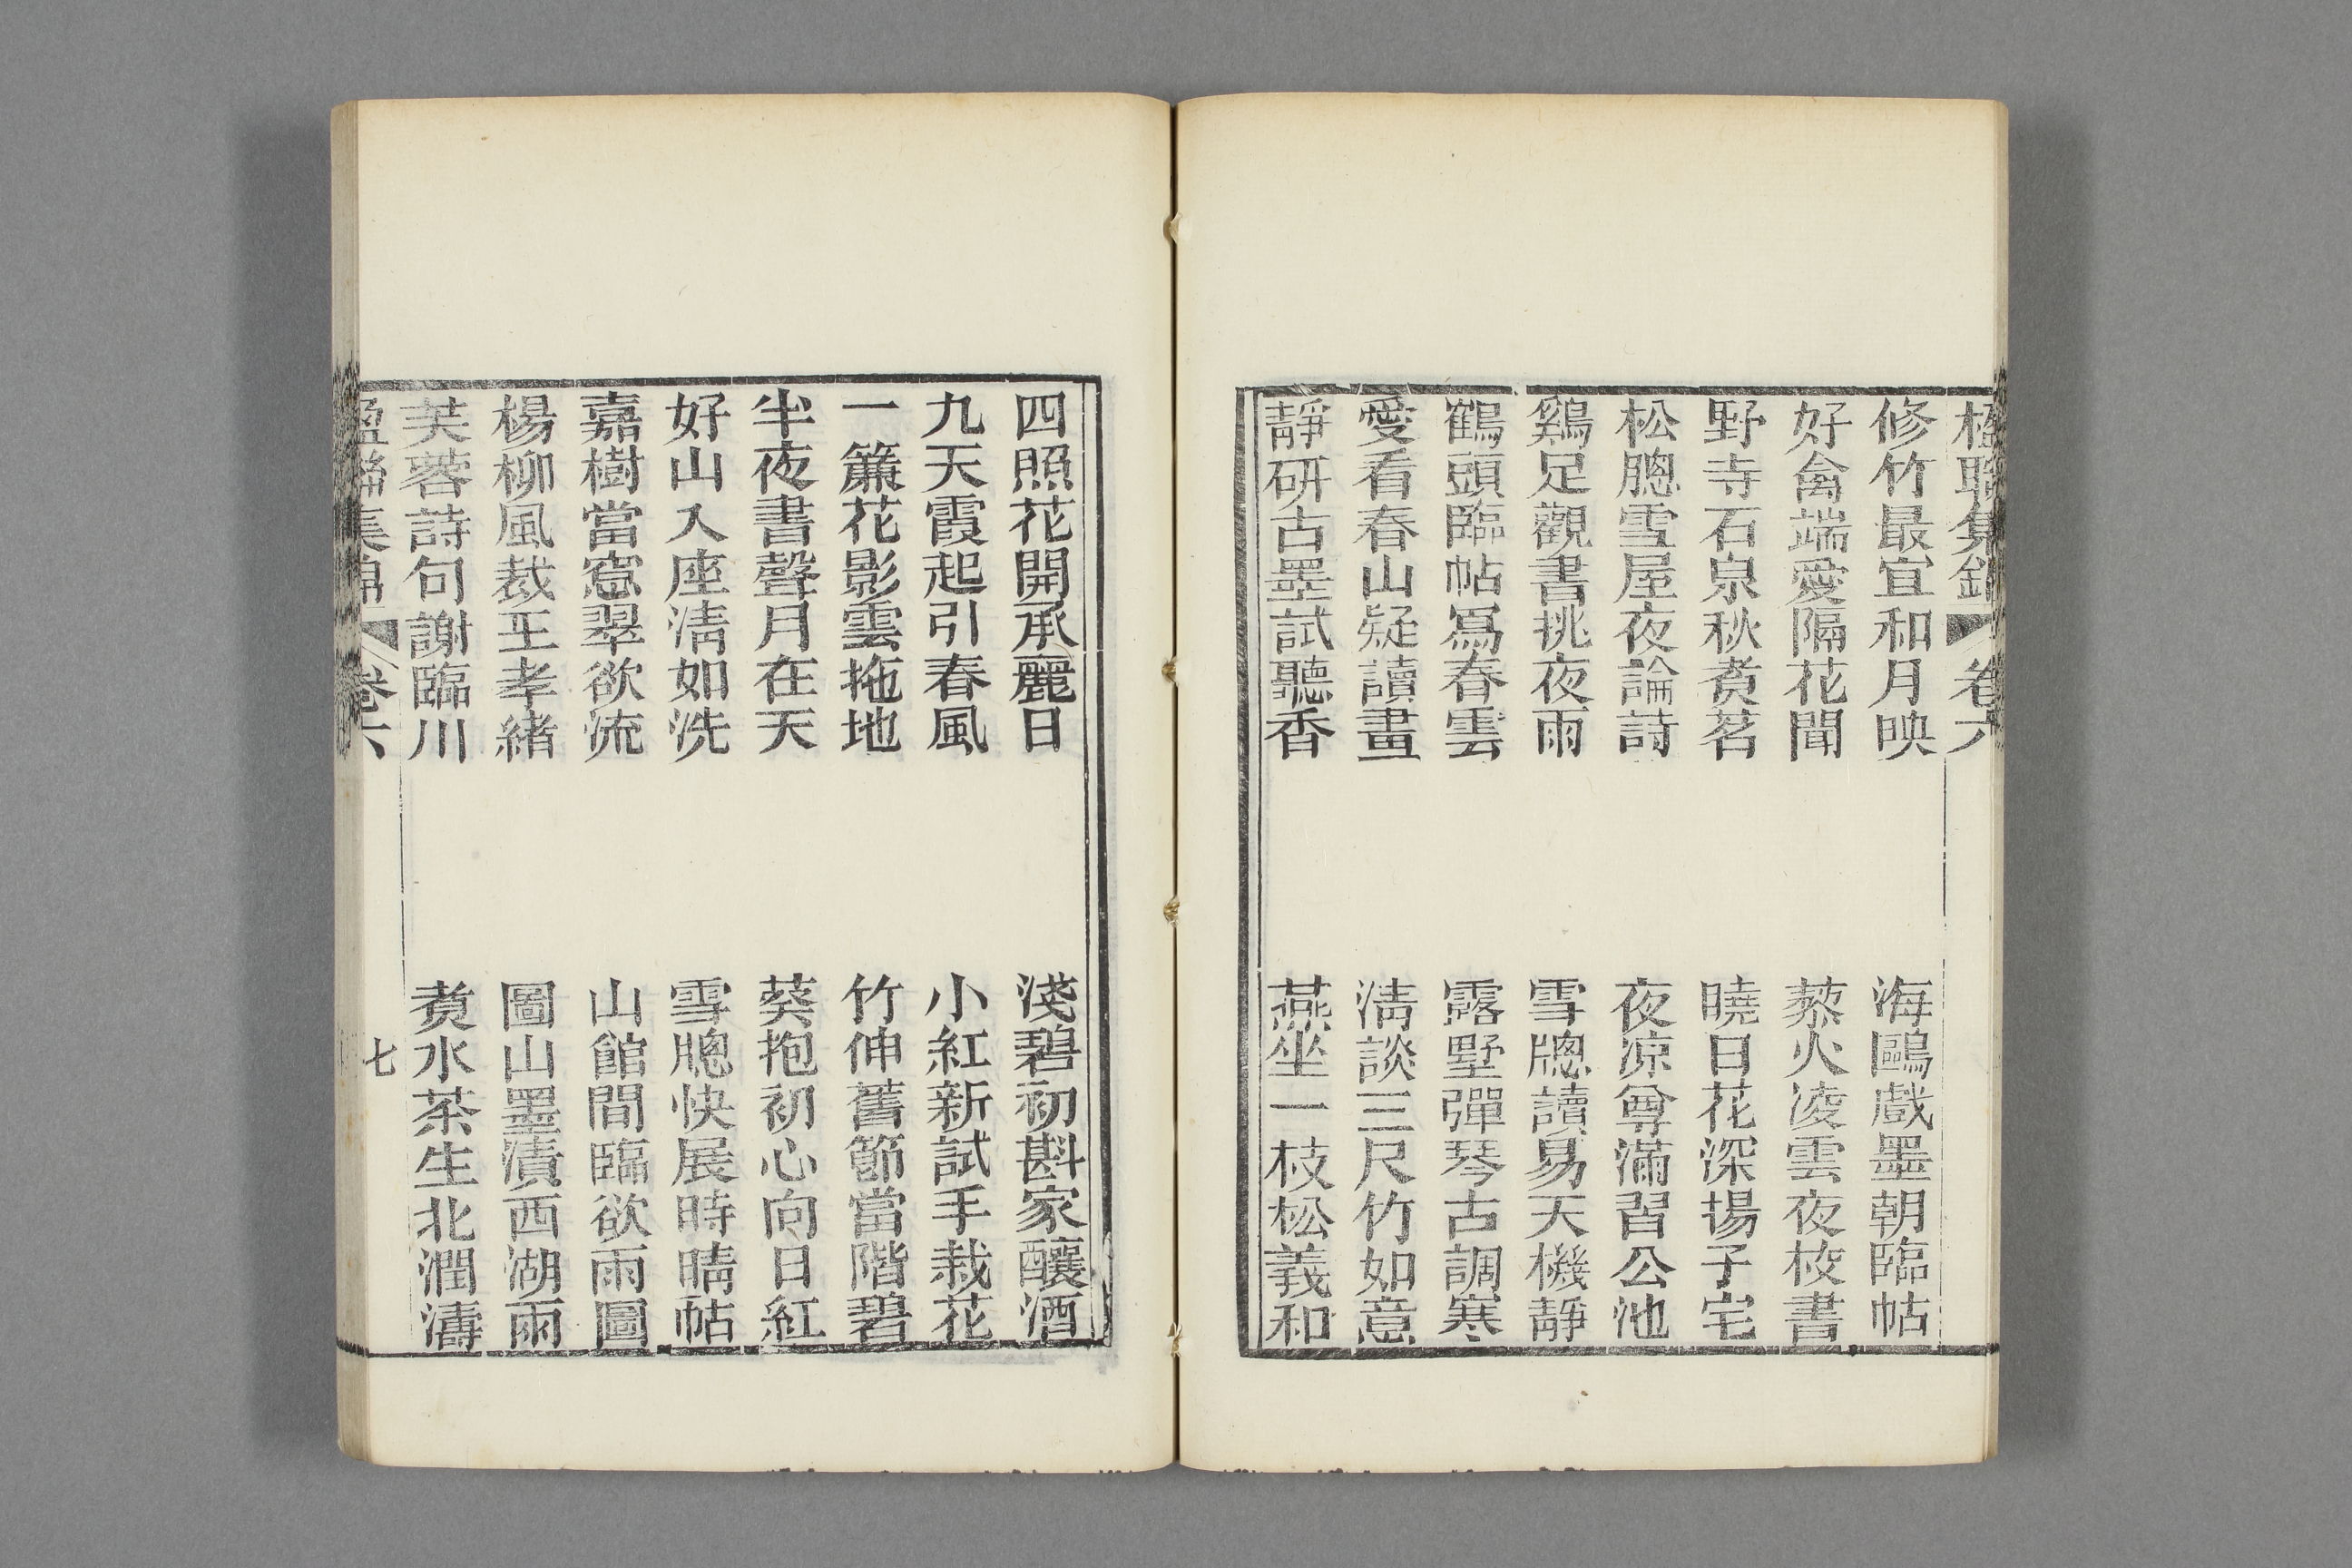 楹聯集錦 卷六
修竹最宜和月映 海鷗戲墨朝臨帖
好禽端愛隔花聞 藜火凌雲夜校書
野寺石泉秋煑茗 曉日花深揚子宅
松牕雪屋夜論詩 夜凉尊滿習公池
鷄足觀書挑夜雨 雪牕讀易天機靜
鶴頭臨帖寫春雲 露墅彈琴古調寒
愛看春山疑讀畫 清談三尺竹如意
靜研古墨試聽香 燕坐一枝松義和
四照花開承麗日 淺碧初斟家釀酒
九天霞起引春風 小紅新試手栽花
一簾花影雲拖地 竹伸舊節當階碧
半夜書聲月在天 葵抱初心向日紅
好山入座清如洗 雪牕快展時晴帖
嘉樹當窓翠欲流 山館間臨欲雨圖
楊柳風裁王孝緒 圖山墨漬西湖雨
芙蓉詩句謝臨川 煑水茶生北澗濤
楹聯集錦 卷六 七